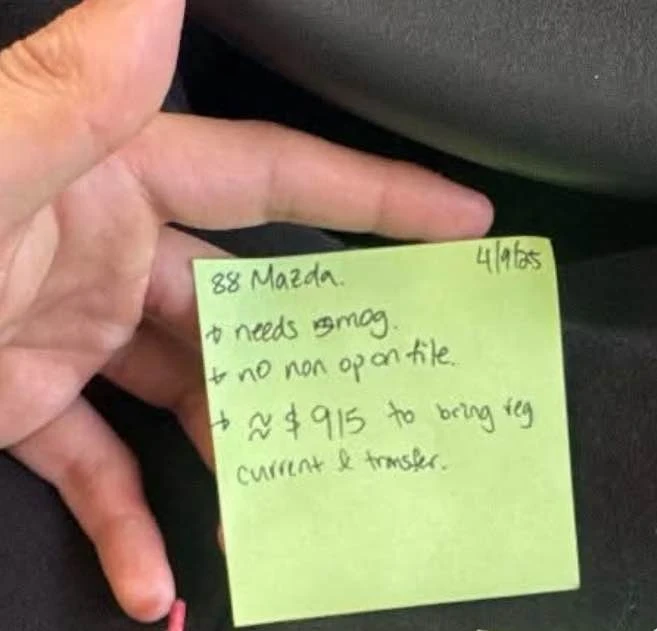 4/9/25
88 Mazda.
+ needs smog.
+ no non op on file.
+ ≈ $915 to bring reg
current & transfer.